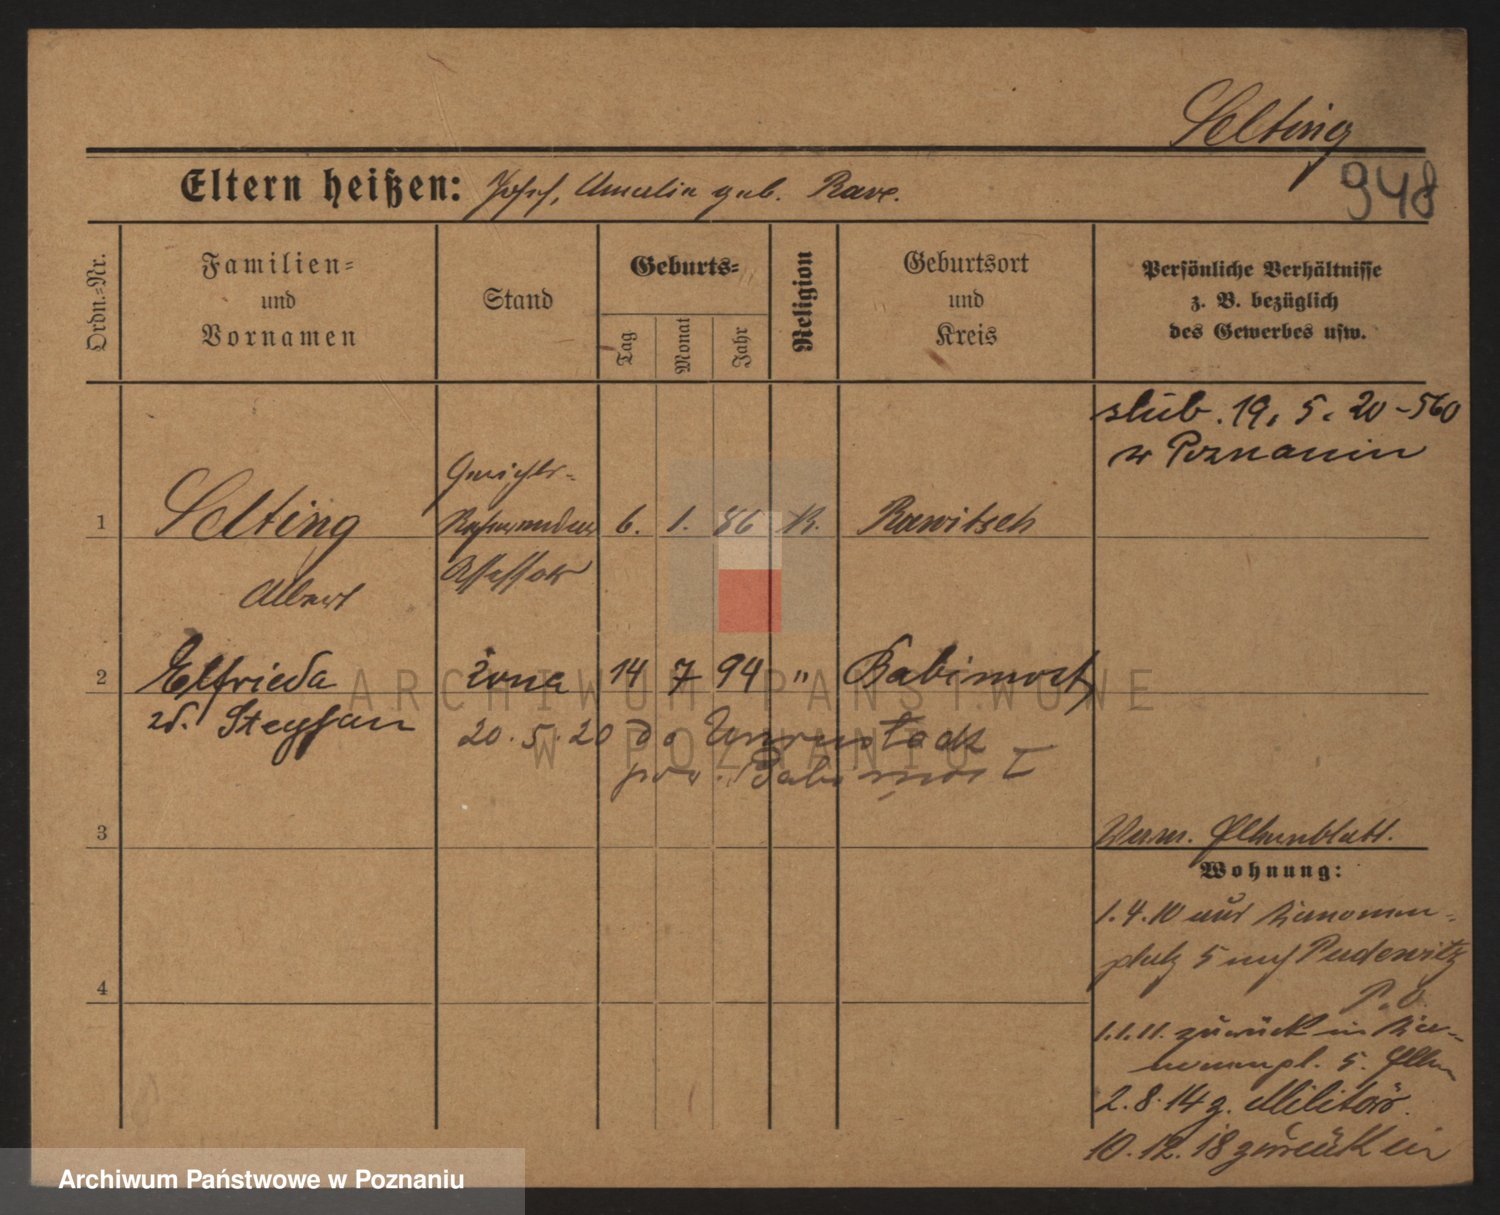 Selting
Eltern heißen: Josef, Amalia geb. Rave.
948
Ordn.-Nr.
Familien-
und
Vornamen
Stand
Geburts-
Tag
Monat
Jahr
Religion
Geburtsort
und
Kreis
Persönliche Verhältnisse
z. B. bezüglich
des Gewerbes usw.
ślub. 19. 5. 20 - 560
w Poznaniu
1
Selting
Albert
Gerichts-
Referendar
Assessor
6. 1. 86 K. Rawitsch
2
Elfrieda
zd. Steffan
żona 14 7 94 " Babimost
20. 5. 20 do Unruhstadt
pow. Babimost
3
Verm. Elternblatt.
Wohnung:
1.4.10 auf Kanonen-
platz 5 nach Pudewitz
P. O.
1.1.11. zurück in Ka-
nonenpl. 5. Eltern
4
2.8.14 z. Militär.
10.12.18 zurück in
ARCHIWUM PAŃSTWOWE
W POZNANIU
Archiwum Państwowe w Poznaniu